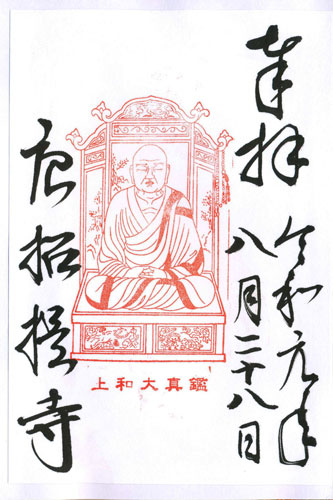 奉拝
令和元年
八月二十八日
唐招提寺
上和大真鑑